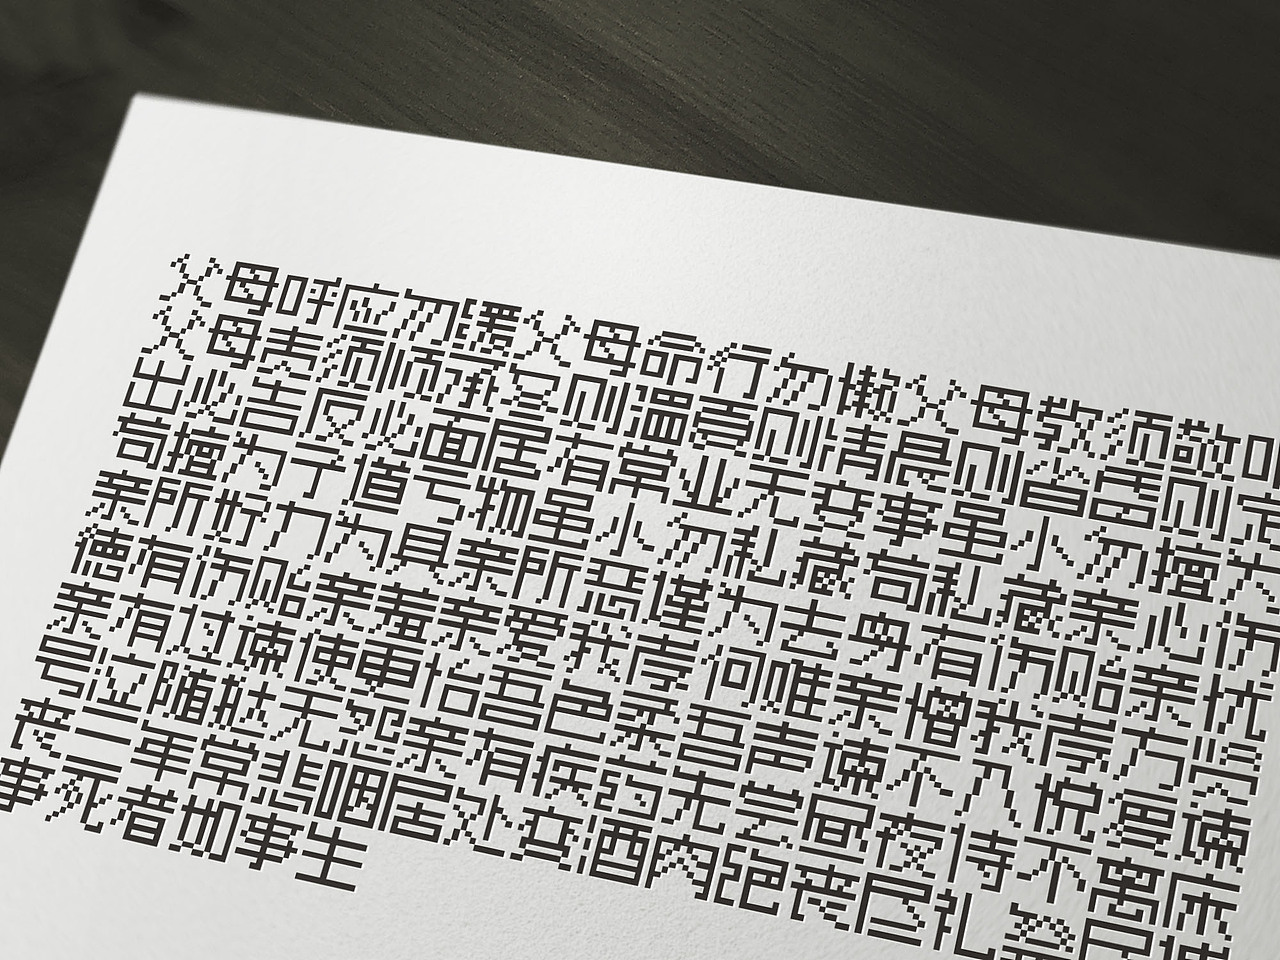 父母呼应勿缓父母命行勿懒父母教须敬
父母责须顺承冬则温夏则凊晨则省昏则定
出必告反必面居有常业无变事虽小勿擅为
苟擅为子道亏物虽小勿私藏苟私藏亲心伤
亲所好力为具亲所恶谨为去身有伤贻亲忧
德有伤贻亲羞亲爱我孝何难亲憎我孝方贤
亲有过谏使更怡吾色柔吾声谏不入悦复谏
号泣随挞无怨亲有病药先尝昼夜侍不离床
丧三年常悲咽居处变酒肉绝丧尽礼祭尽诚
事死者如事生